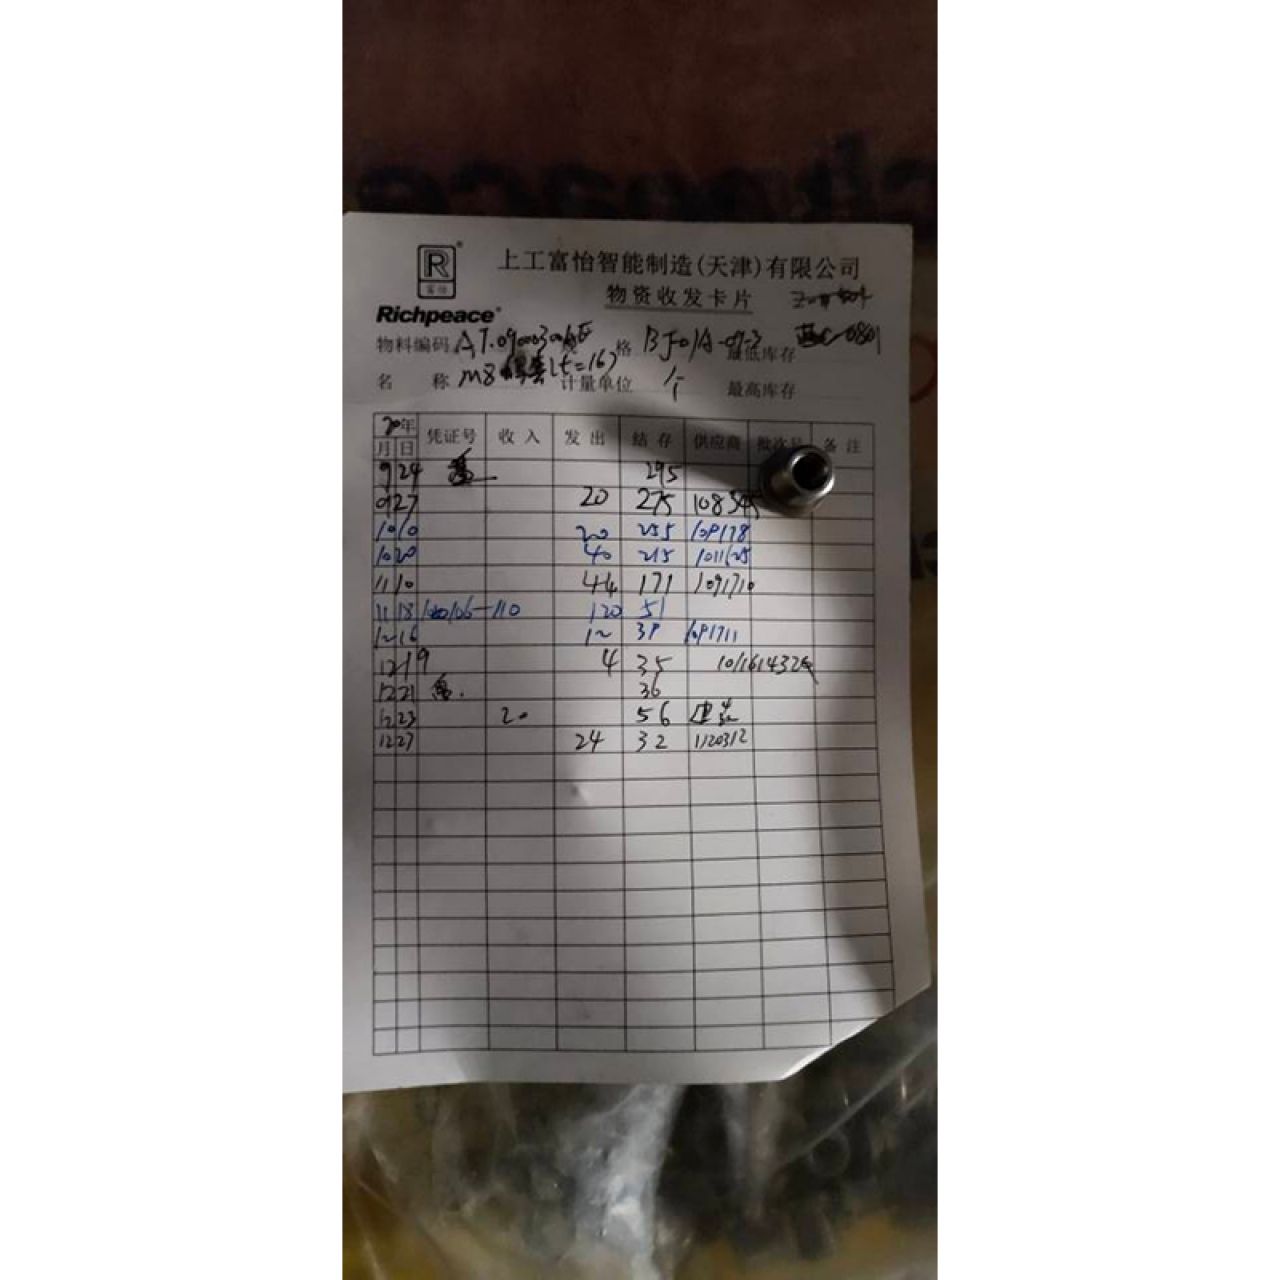 R
富怡
Richpeace
上工富怡智能制造(天津)有限公司
物资收发卡片
物料编码 格 BJ01A-07-3 最低库存
名 称 M8 (t=16) 计量单位 个 最高库存
20年 凭证号 收入 发出 结存 供应商 批次号 备注
月 日
9 24 盘 295
9 27 20 275 108545
10 10 20 255 109178
10 20 40 215 1011625
11 10 44 171 1091710
11 18 -110 120 51
12 16 12 39 1091711
12 19 4 35
12 21 盘. 36
12 23 20 56
12 27 24 32 1120312